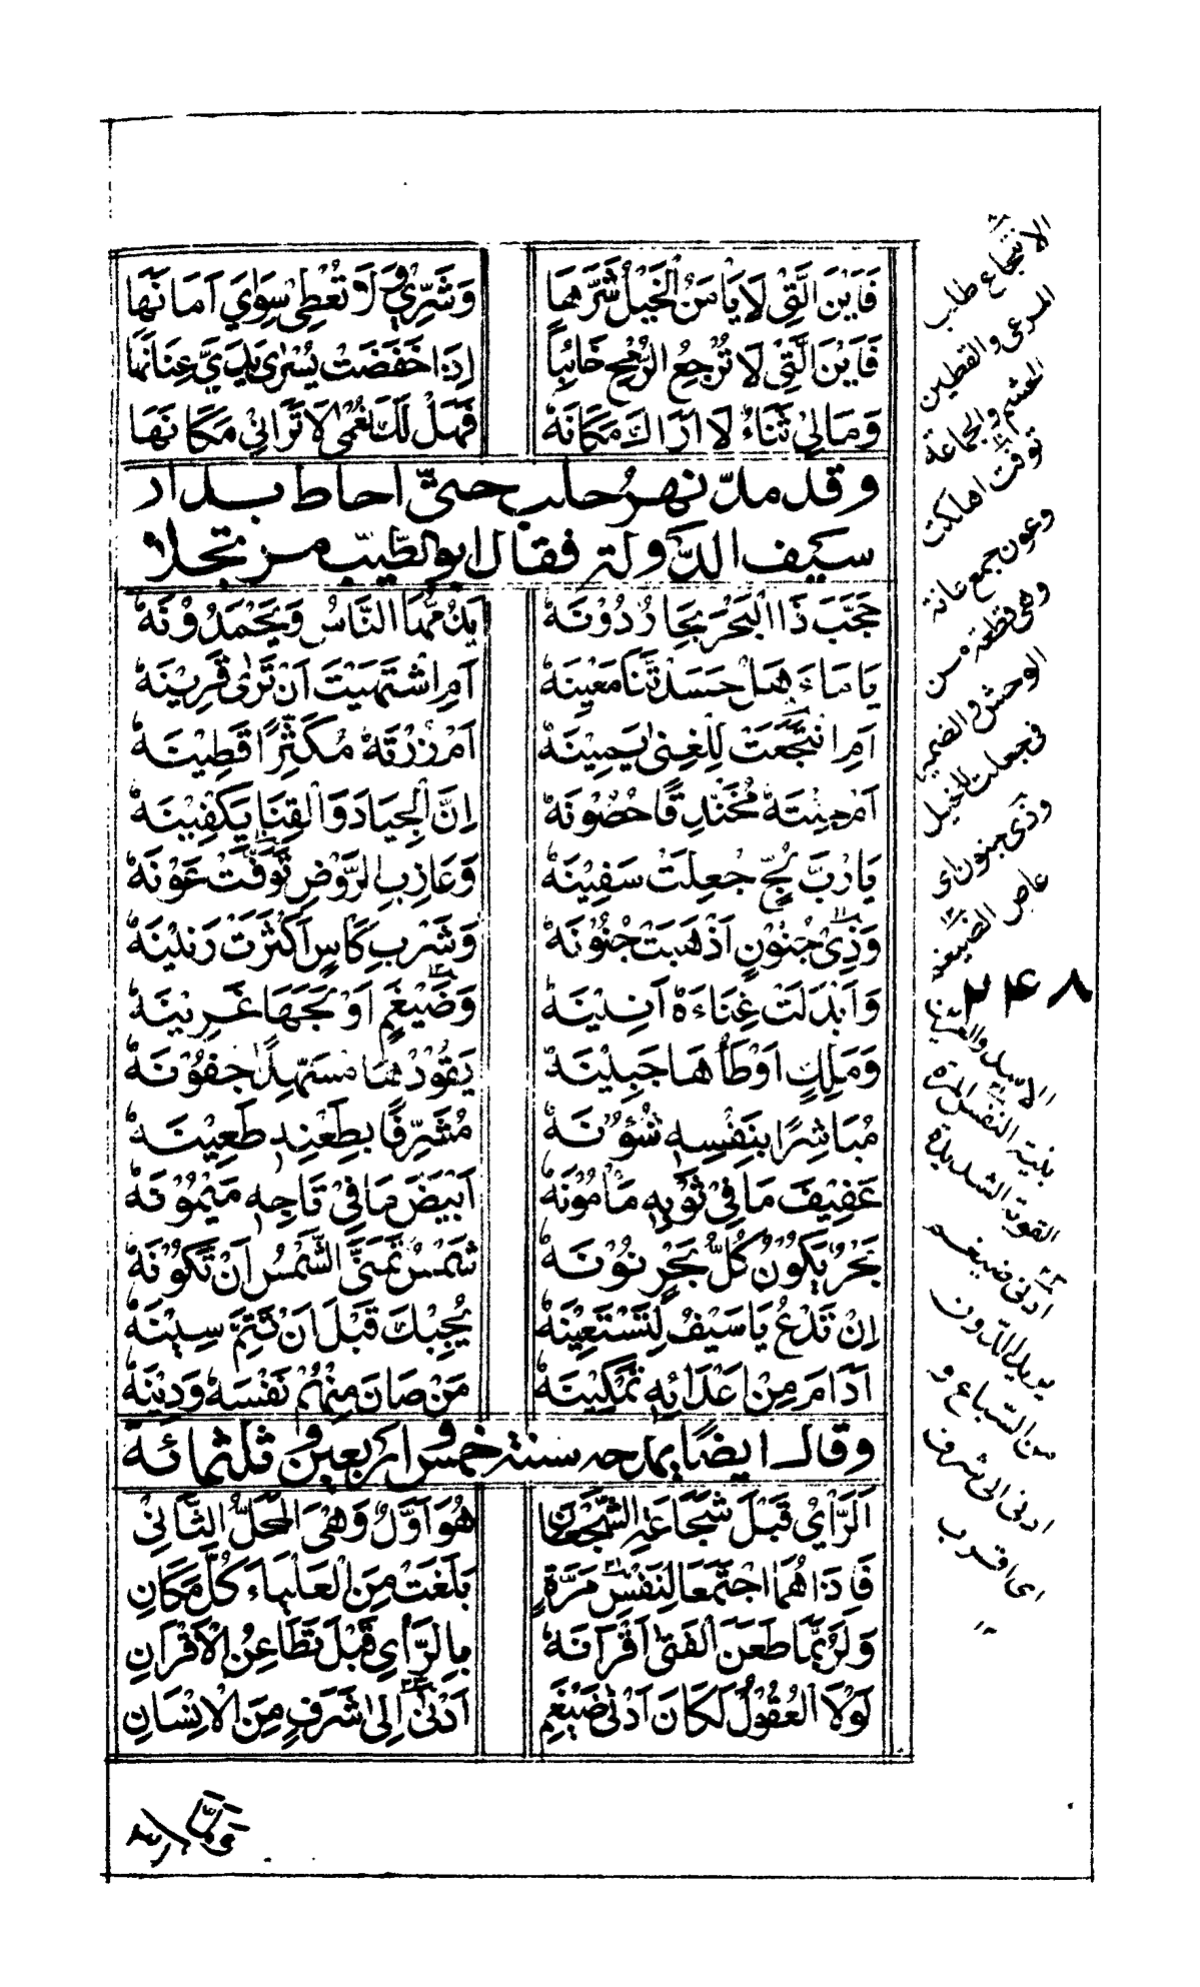 فَاَيْنَ الَّتِيْ لَا يَأمَنُ الْخَيْلُ شَرَّهَا وَشَرِّيْ وَلَا تُعْطِيْ سِوَايَ اَمَانَهَا
فَاَيْنَ الَّتِيْ لَا تُرْجِعُ الرُّمْحَ خَائِبًا اِذَا خَفَضَتْ يُسْرٰى يَدَيَّ عِنَانَهَا
وَمَالِيْ ثَنَاءٌ لَا اَرَاكَ مَكَانَهٗ فَهَلْ لَكَ نُعْمٰى لَا تَرَانِيْ مَكَانَهَا
وقد مدّ نهرُ حلب حتّى احاط بدار
سيف الدّولة فقال ابو الطّيّب مرتجلا
حَجَّبَ ذَا الْبَحْرَ بِحَارٌ دُوْنَهٗ يَذُمُّهَا النَّاسُ وَيَحْمَدُوْنَهٗ
يَا مَاءُ هَلْ حَسَدْتَنَا مَعِيْنَهٗ اَمِ اشْتَهَيْتَ اَنْ تَرٰى قَرِيْنَهٗ
اَمِ انْتَجَعْتَ لِلْغِنٰى يَمِيْنَهٗ اَمْ زُرْتَهٗ مُكَثِّرًا قَطِيْنَهٗ
اَمْ جِئْتَهٗ مُخَنْدِقًا حُصُوْنَهٗ اِنَّ الْجِيَادَ وَالْقِنَا يَكْفِيْنَهٗ
يَا رُبَّ لُجٍّ جُعِلَتْ سَفِيْنَهٗ وَعَازِبِ الرَّوْضِ تَوَفَّتْ عَوْنَهٗ
وَذِيْ جُنُوْنٍ اَذْهَبَتْ جُنُوْنَهٗ وَشَرْبِ كَأسٍ اَكْثَرَتْ رَنِيْنَهٗ
وَاَبْدَلَتْ غِنَاءَهٗ اَنِيْنَهٗ وَضَيْغَمٍ اَوْلَجَهَا عَرِيْنَهٗ
وَمَلِكٍ اَوْطَأَهَا جَبِيْنَهٗ يَقُوْدُهَا مُسَهِّدًا جُفُوْنَهٗ
مُبَاشِرًا بِنَفْسِهٖ شُؤُنَهٗ مُشَرِّفًا بِطَعْنِهٖ طَعِيْنَهٗ
عَفِيْفَ مَا فِيْ ثَوْبِهٖ مَأمُوْنَهٗ اَبْيَضَ مَا فِيْ تَاجِهٖ مَيْمُوْنَهٗ
بَحْرٌ يَكُوْنُ كُلُّ بَحْرٍ نُوْنَهٗ شَمْسٌ تَمَنَّى الشَّمْسُ اَنْ تَكُوْنَهٗ
اِنْ تَدْعُ يَا سَيْفُ لِتَسْتَعِيْنَهٗ يُجِبْكَ قَبْلَ اَنْ تُتِمَّ سِيْنَهٗ
اَدَامَ مِنْ اَعْدَائِهٖ تَمْكِيْنَهٗ مَنْ صَانَ مِنْهُمْ نَفْسَهٗ وَدِيْنَهٗ
وقال ايضًا يمدحه سنة خمس واربعين وثلثمائة
اَلرَّأيُ قَبْلَ شَجَاعَةِ الشُّجْعَانِ هُوَ اَوَّلٌ وَهِيَ الْمَحَلُّ الثَّانِيْ
فَاِذَا هُمَا اجْتَمَعَا لِنَفْسٍ مَرَّةٍ بَلَغَتْ مِنَ الْعَلْيَاءِ كُلَّ مَكَانِ
وَلَرُبَّمَا طَعَنَ الْفَتٰى اَقْرَانَهٗ بِالرَّأيِ قَبْلَ تَطَاعُنِ الْاَقْرَانِ
لَوْلَا الْعُقُوْلُ لَكَانَ اَدْنٰى ضَيْغَمٍ اَدْنٰى اِلٰى شَرَفٍ مِنَ الْاِنْسَانِ
الانتجاع طلب
المرعى والقطين
الحشم والجماعة
توفت اهلكت
وعون جمع عانة
وهى قطعة من
الوحش والضمير
فى جعلت للخيل
وذى جنون اى
عاص الضيغم
٢٤٨
الاسد والعرين
بنية النفس المرة
القوية الشديدة
ادنى ضيغم
يريد الدون
من السباع و
ادنى الى شرف
اى اقرب
١٢